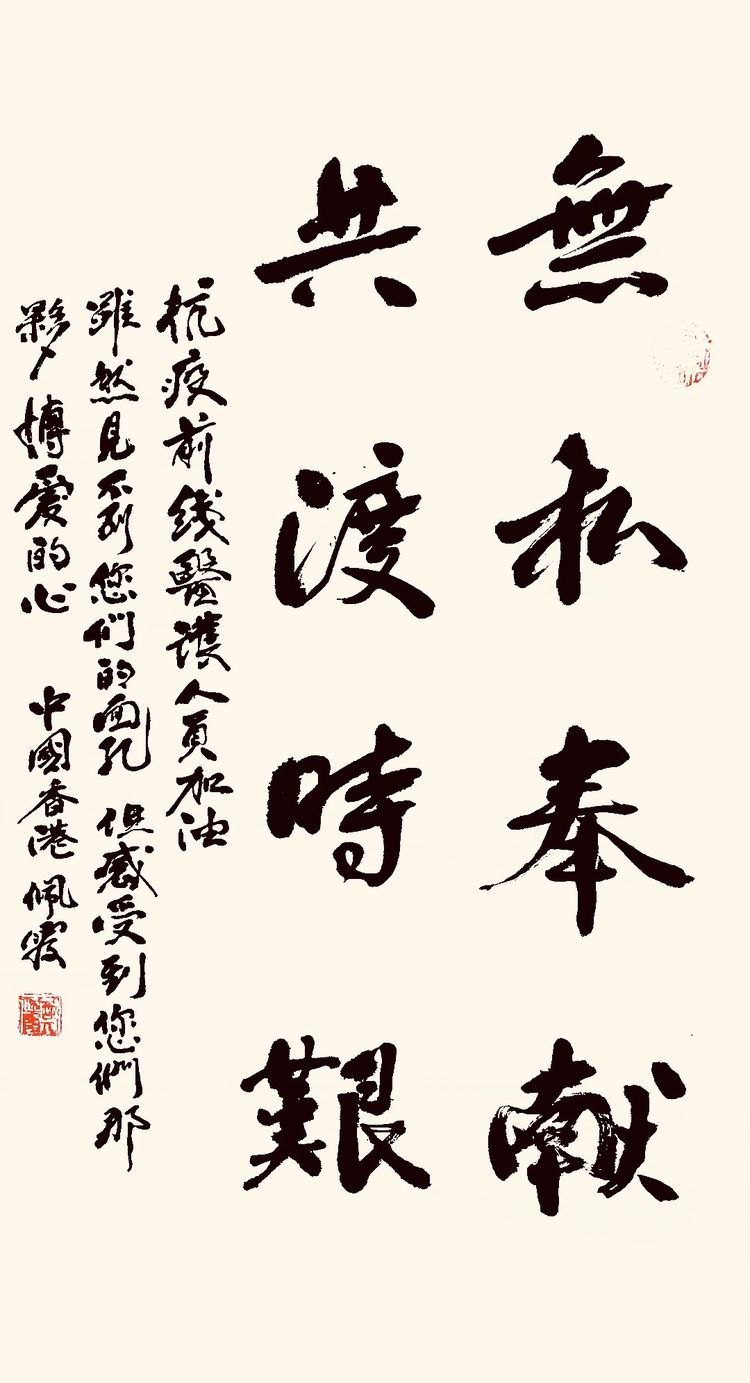 無私奉献
共渡時艱
抗疫前綫醫護人員加油
雖然見不到您们的面孔 但感受到您們那
博愛的心 中國香港 佩霞